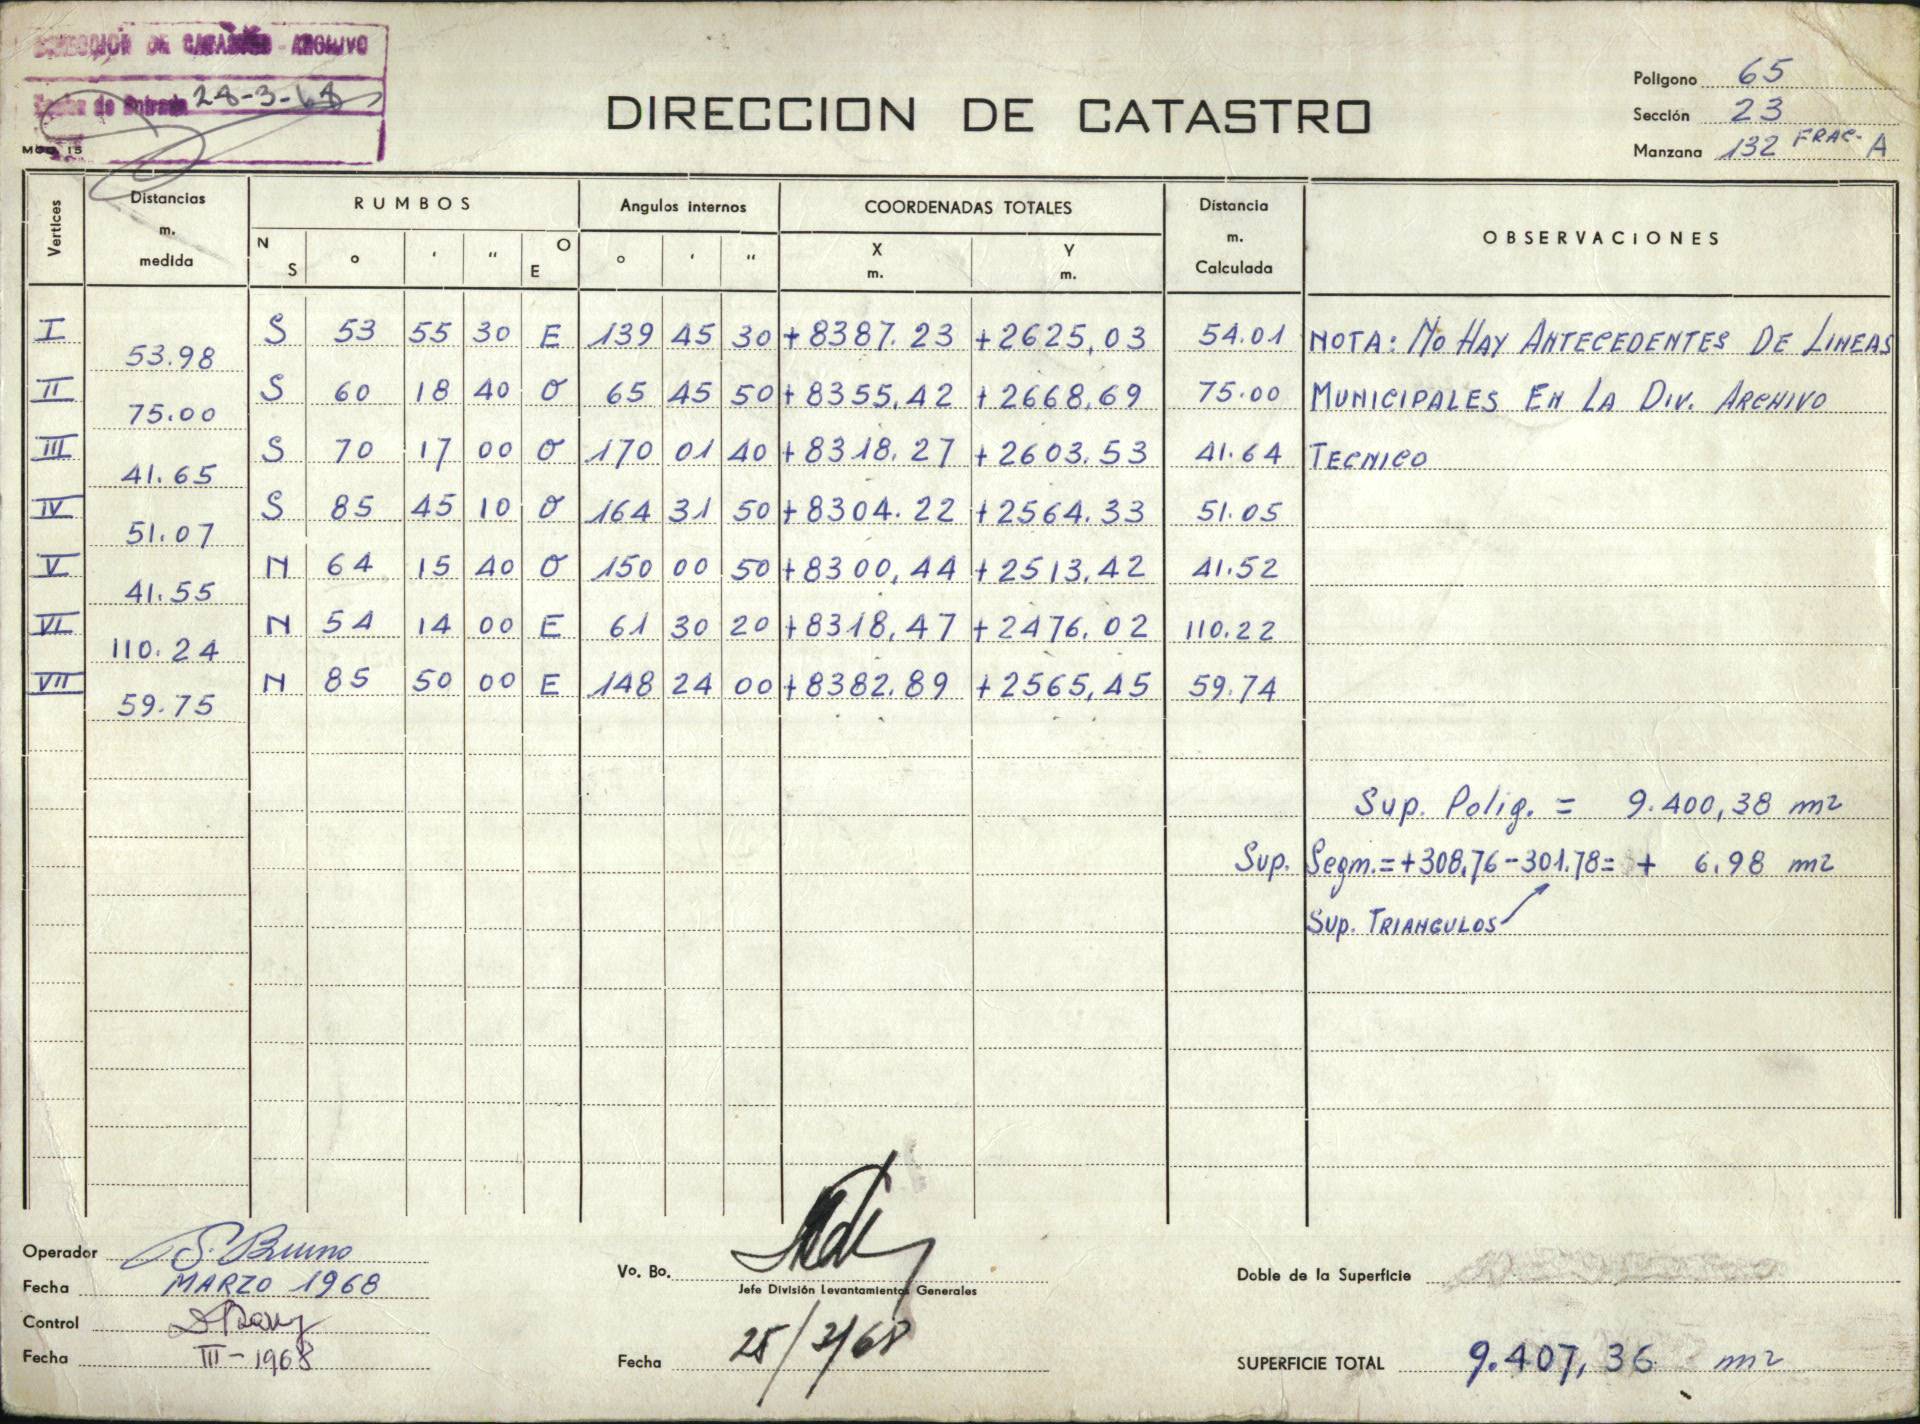 DIRECCION DE CATASTRO - ARCHIVO
Fecha de Entrada 28-3-68
MOD. 15
DIRECCION DE CATASTRO
Polígono 65
Sección 23
Manzana 132 FRAC- A
Vertices Distancias m. medida RUMBOS Angulos internos COORDENADAS TOTALES Distancia m. Calculada OBSERVACIONES
N S ° ' " O E ° ' " X m. Y m.
I 53.98 S 53 55 30 E 139 45 30 +8387.23 +2625,03 54.01 NOTA: NO HAY ANTECEDENTES DE LINEAS
II 75.00 S 60 18 40 O 65 45 50 +8355,42 +2668,69 75.00 MUNICIPALES EN LA DIV. ARCHIVO
III 41.65 S 70 17 00 O 170 01 40 +8318.27 +2603.53 41.64 TECNICO
IV 51.07 S 85 45 10 O 164 31 50 +8304.22 +2564.33 51.05
V 41.55 N 64 15 40 O 150 00 50 +8300,44 +2513,42 41.52
VI 110.24 N 54 14 00 E 61 30 20 +8318,47 +2476,02 110.22
VII 59.75 N 85 50 00 E 148 24 00 +8382.89 +2565,45 59.74
Sup. Polig. = 9.400,38 m2
Sup. Segm. = +308,76 - 301.78 = + 6.98 m2
Sup. TRIANGULOS
Operador S. Bruno
Fecha MARZO 1968
Control
Fecha III - 1968
Vo. Bo.
Jefe División Levantamientos Generales
Fecha 25/3/68
Doble de la Superficie
SUPERFICIE TOTAL 9.407,36 m2